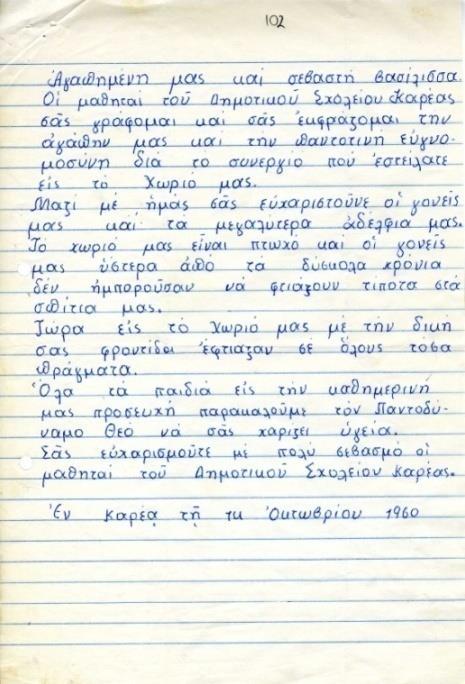 102
Ἀγαπημένη μας καί σεβαστή βασίλισσα.
Οἱ μαθηταί τοῦ Δημοτικοῦ Σχολείου Καρέας
σᾶς γράφομαι καί σᾶς ἐμφράζομαι την
ἀγάπην μας καί την παντοτινή εὐγνο-
μοσύνη διά το συνεργιο πού ἐστείλατε
εἰς τό χωριό μας.
Μαζί μέ ἡμᾶς σᾶς εὐχαριστοῦνε οἱ γονεῖς
μας καί τά μεγαλύτερα ἀδέλφια μας.
Τό χωριό μας εἶναι πτωχό καί οἱ γονεῖς
μας ὕστερα ἀπό τά δύσκολα χρόνια
δέν ἠμποροῦσαν νά φτιάξουν τίποτα στά
σπίτια μας.
Τώρα εἰς τό χωριό μας μέ την διμή
σας φροντίδα ἐφτιαξαν σέ ὅλους τόσα
πράγματα.
Ὅλα τά παιδιά εἰς τήν καθημερινή
μας προσευχή παρακαλοῦμε τόν Παντοδύ-
ναμο Θεό νά σᾶς χαρίζει ὑγεία.
Σᾶς εὐχαρισμοῦτε μέ πολύ σεβασμό οἱ
μαθηταί τοῦ Δημοτικοῦ Σχολείου Καρέας.
Ἐν Καρέᾳ τῇ Ὀκτωβρίου 1960